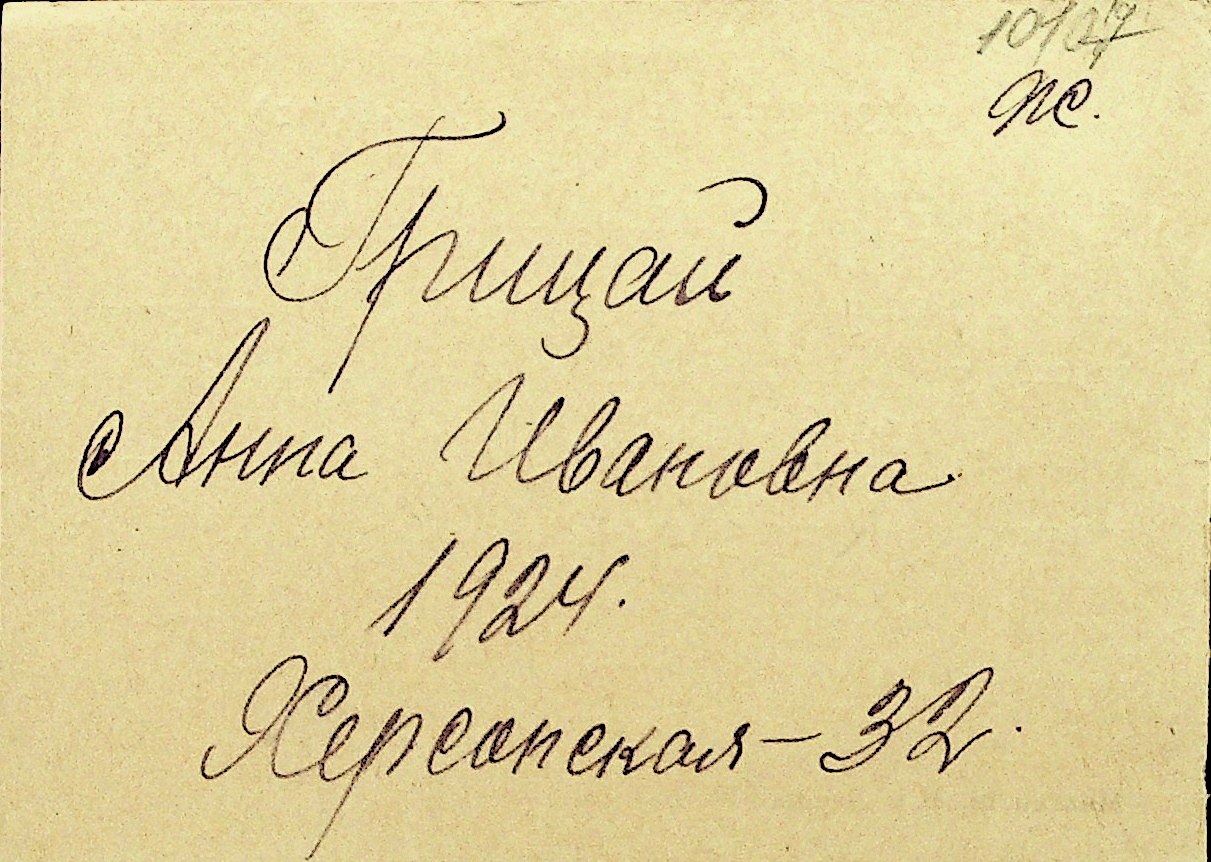 10/27
пс.
Грицай
Анна Ивановна
1924.
Херсонская – 32.